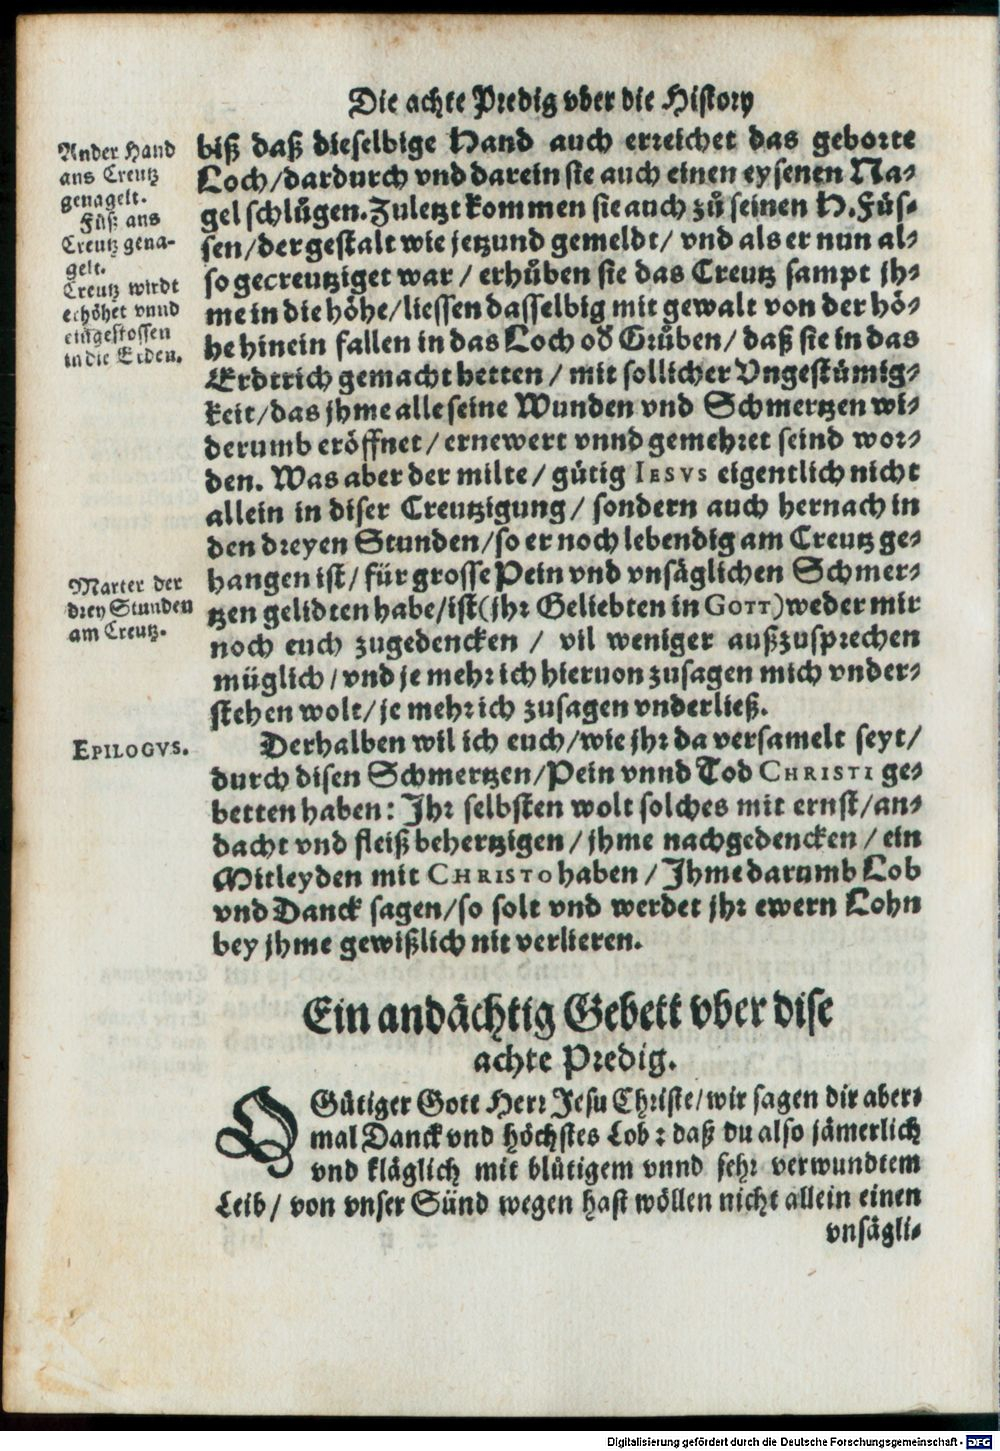 Die achte Predig vber die History
Ander Hand
ans Creutz
genagelt.
Füß ans
Creutz gena-
gelt.
Creutz wirdt
erhöhet vnnd
eingestossen
in die Erden.
Marter der
drey Stunden
am Creutz.
EPILOGVS.
biß daß dieselbige Hand auch erreichet das geborte
Loch/dardurch vnd darein sie auch einen eysenen Na-
gel schlůgen. Zuletzt kommen sie auch zů seinen H. Füs-
sen/dergestalt wie jetzund gemeldt/ vnd als er nun al-
so gecreutziget war / erhůben sie das Creutz sampt jh-
me in die höhe/liessen dasselbig mit gewalt von der hö-
he hinein fallen in das Loch oď Grůben/ daß sie in das
Erdtrich gemacht hetten / mit sollicher Vngestümig-
keit/das jhme alle seine Wunden vnd Schmertzen wi-
derumb eröffnet/ ernewert vnnd gemehret seind wor-
den. Was aber der milte/ gütig IESVS eigentlich nicht
allein in diser Creutzigung/ sondern auch hernach in
den dreyen Stunden/so er noch lebendig am Creutz ge-
hangen ist/ für grosse Pein vnd vnsäglichen Schmer-
tzen gelidten habe/ist(jhr Geliebten in GOTT)weder mir
noch euch zugedencken / vil weniger außzusprechen
müglich/vnd je mehr ich hieruon zusagen mich vnder-
stehen wolt/je mehr ich zusagen vnderließ.
Derhalben wil ich euch/wie jhr da versamelt seyt/
durch disen Schmertzen/Pein vnnd Tod CHRISTI ge-
betten haben: Jhr selbsten wolt solches mit ernst/an-
dacht vnd fleiß behertzigen/ jhme nachgedencken / ein
Mitleyden mit CHRISTO haben / Jhme darumb Lob
vnd Danck sagen/so solt vnd werdet jhr ewern Lohn
bey jhme gewißlich nit verlieren.
Ein andächtig Gebett vber dise
achte Predig.
O Gütiger Gott Herr Jesu Christe/wir sagen dir aber-
mal Danck vnd höchstes Lob: daß du also jämerlich
vnd kläglich mit blütigem vnnd sehr verwundtem
Leib/ von vnser Sünd wegen hast wöllen nicht allein einen
vnsägli-
Digitalisierung gefördert durch die Deutsche Forschungsgemeinschaft - DFG